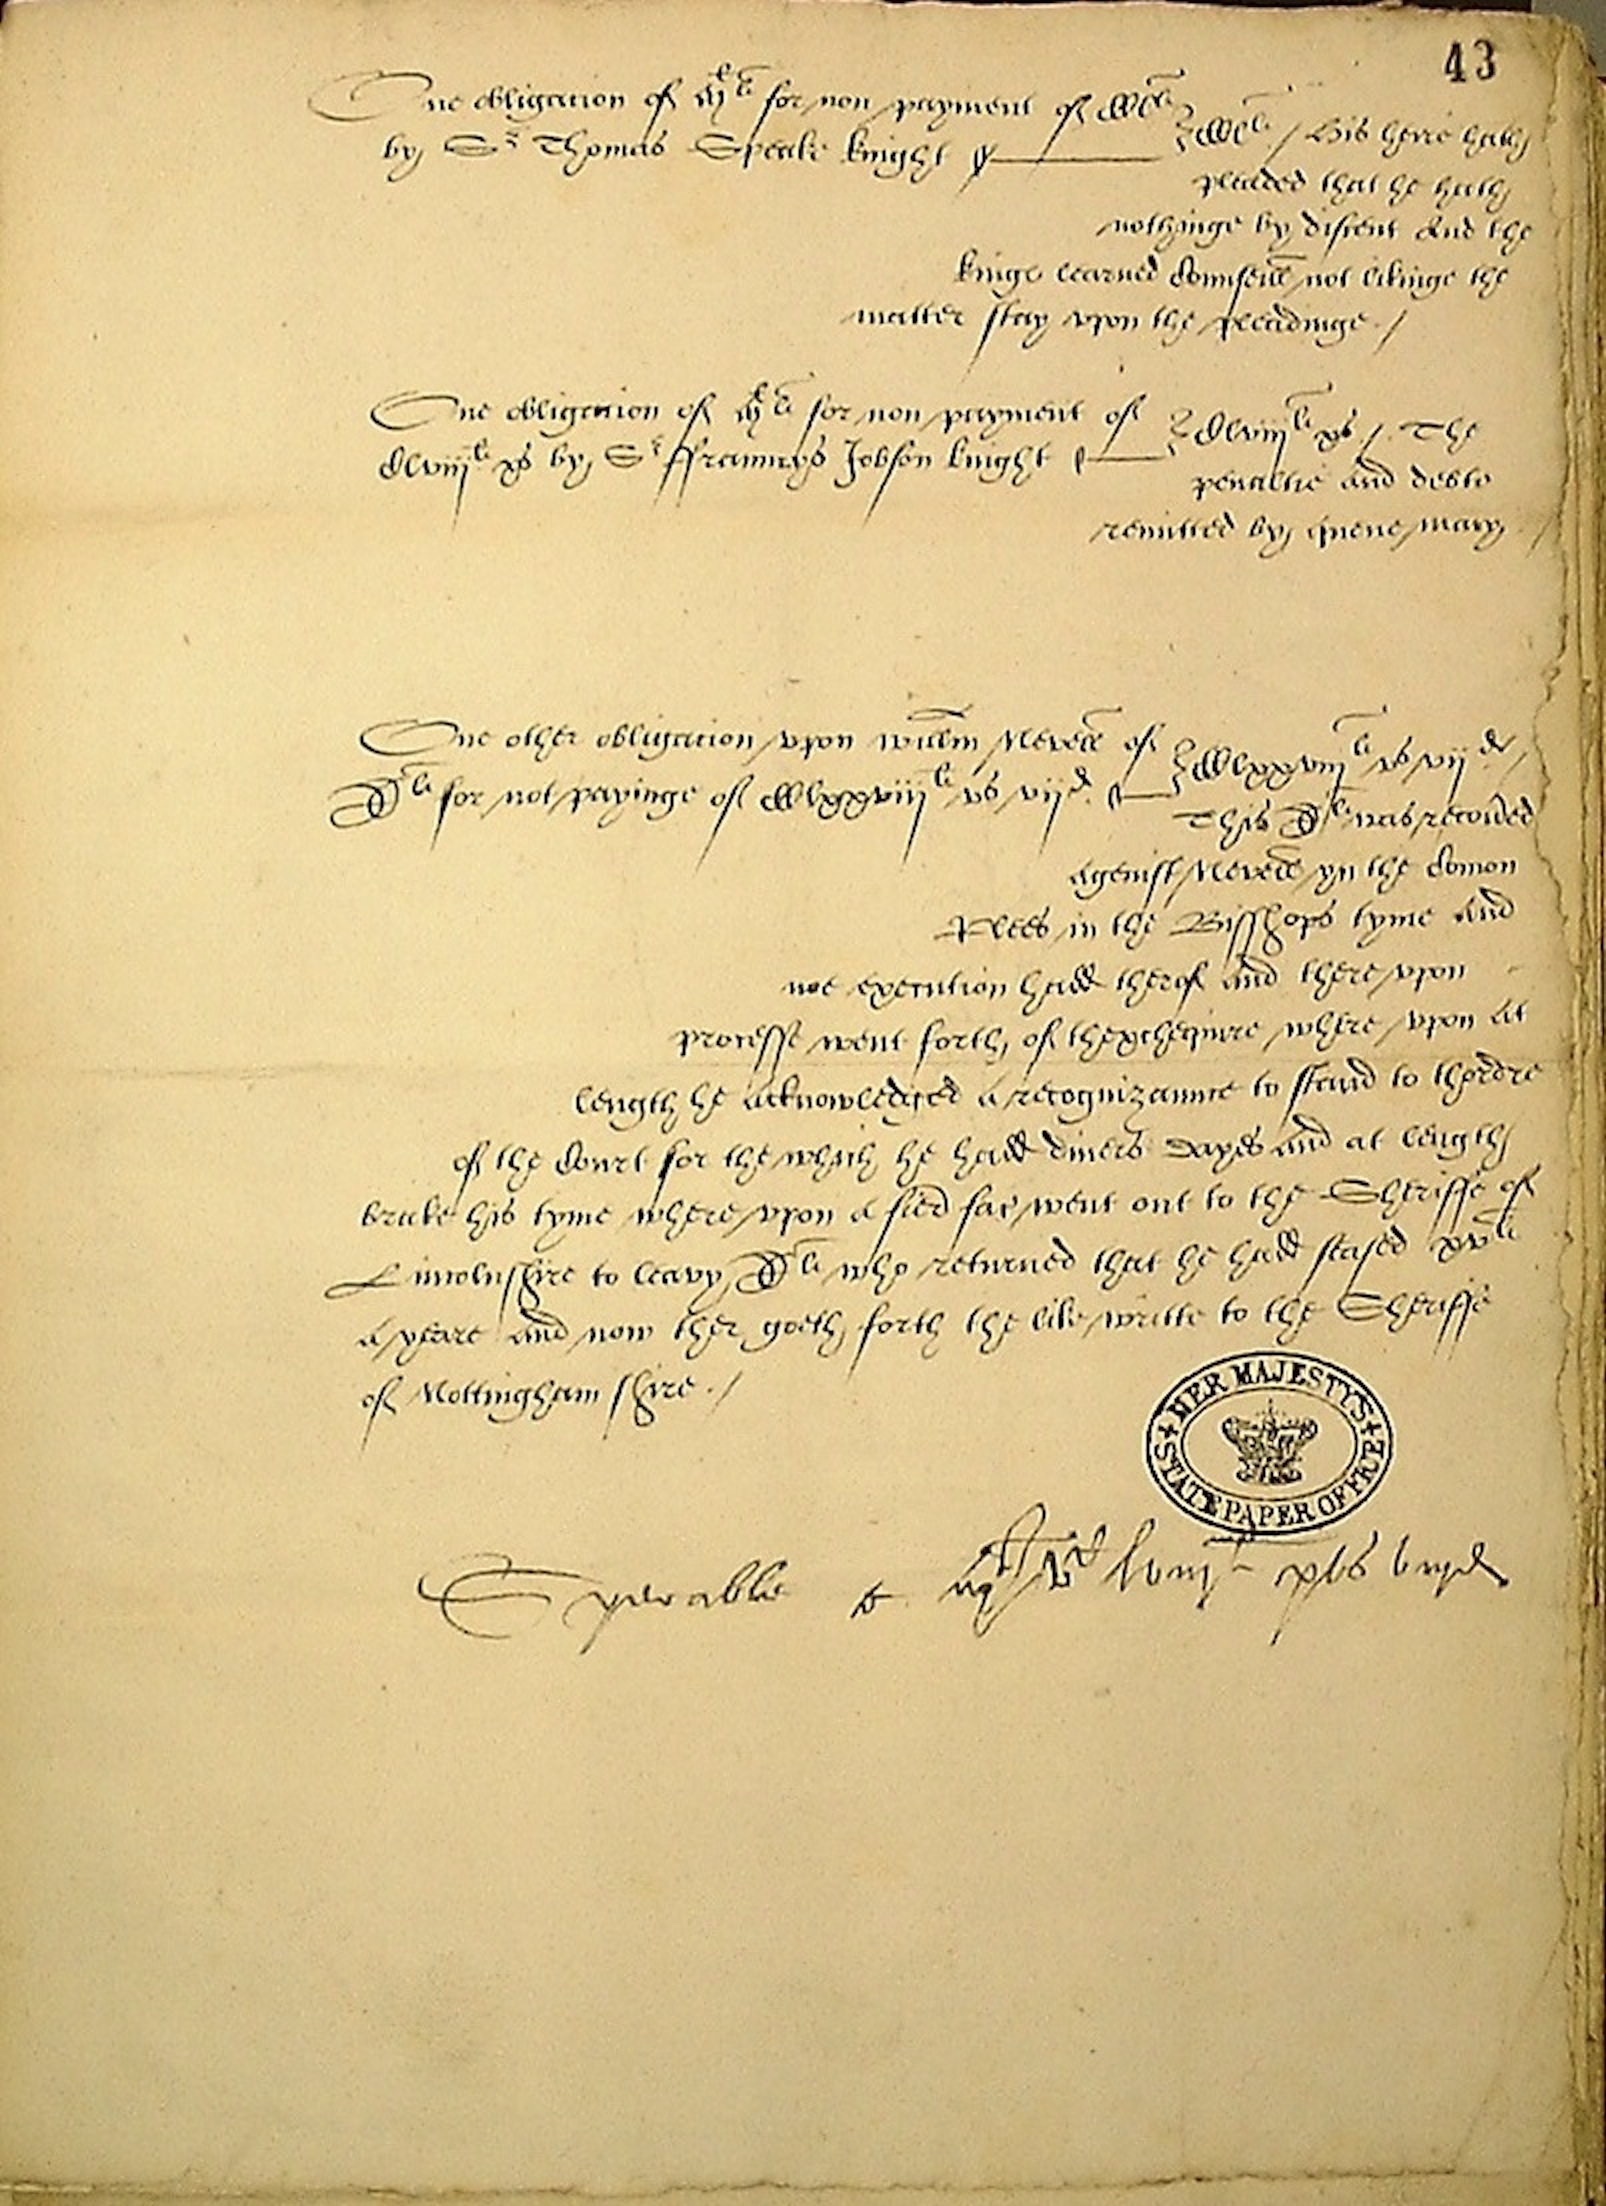 43
One obligacion of for non payment of CCCli
by Sr Thomas Speake knight
CCCli / His heire hath
pleaded that he hath
nothinge by discent And the
kinge learned Counseill not likinge the
matter stay vpon the pleadinge ./
One obligacion of for non payment of
Clviijli xs by Sr ffraunceys Jobson knight
Clviijli xs /. The
penaltie and debte
remitted by quene mary /
One other obligacion vpon willm Nevell of
Dli for not payinge of CClxxviijli vs vijd.
CClxxviijli vs vijd /
This Dli was recoúed
agenist Nevell yn the Comon
Plees in the Bisshops tyme and
noe execution hadd therof and there vpon
processe went forth of thexchequire where vpon at
length he acknowledged a recognizaunce to stand to thordre
of the Court for the which he hadd diuers dayes and at length
brake his tyme where vpon a fierd fac went out to the Sheriffe of
Lincolnshire to leavy Dli who returned that he hadd seased xvli
a yeare and now ther goeth forth the like writte to the Sheriffe
of Nottingham shire ./
HER MAJESTYS STATE PAPER OFFICE
Sperable